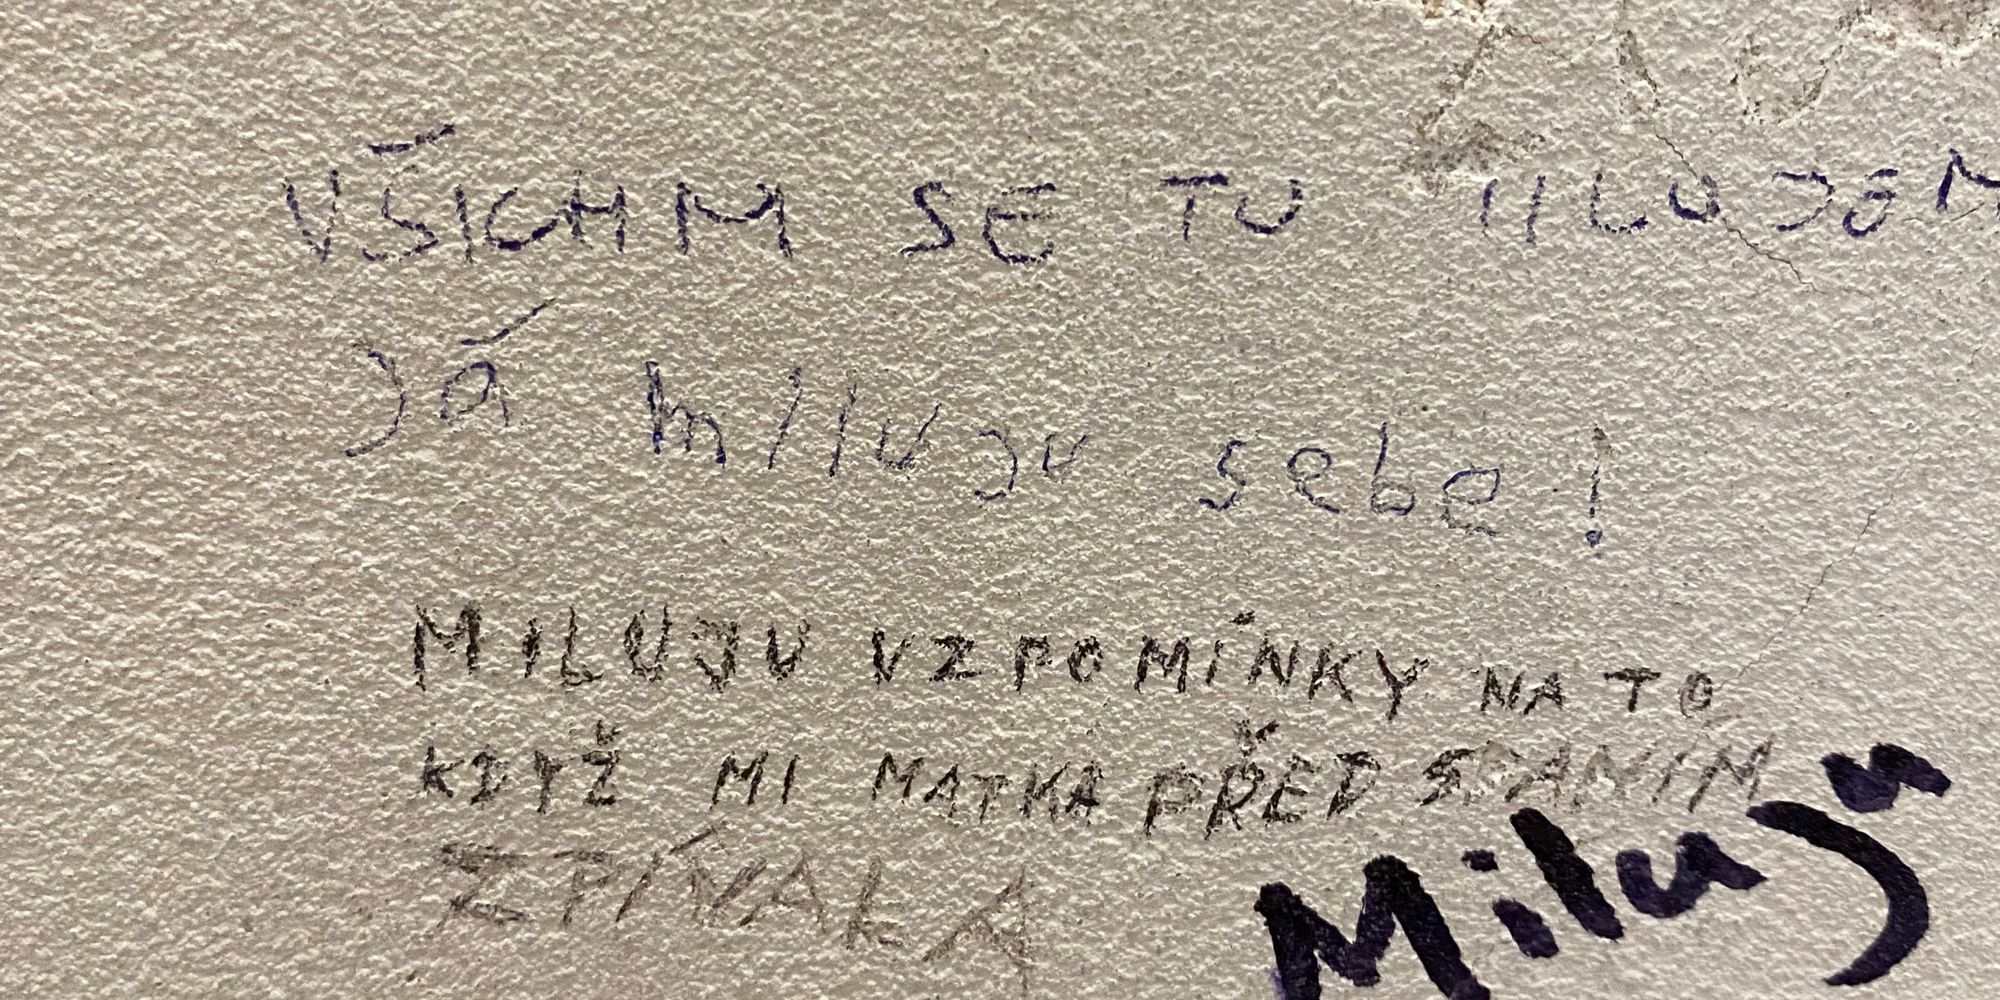 VŠICHNI SE TU MILUJEM
Já miluju sebe!
MILUJU VZPOMÍNKY NA TO
KDYŽ MI MATKA PŘED SPANÍM
ZPÍVALA
Miluju